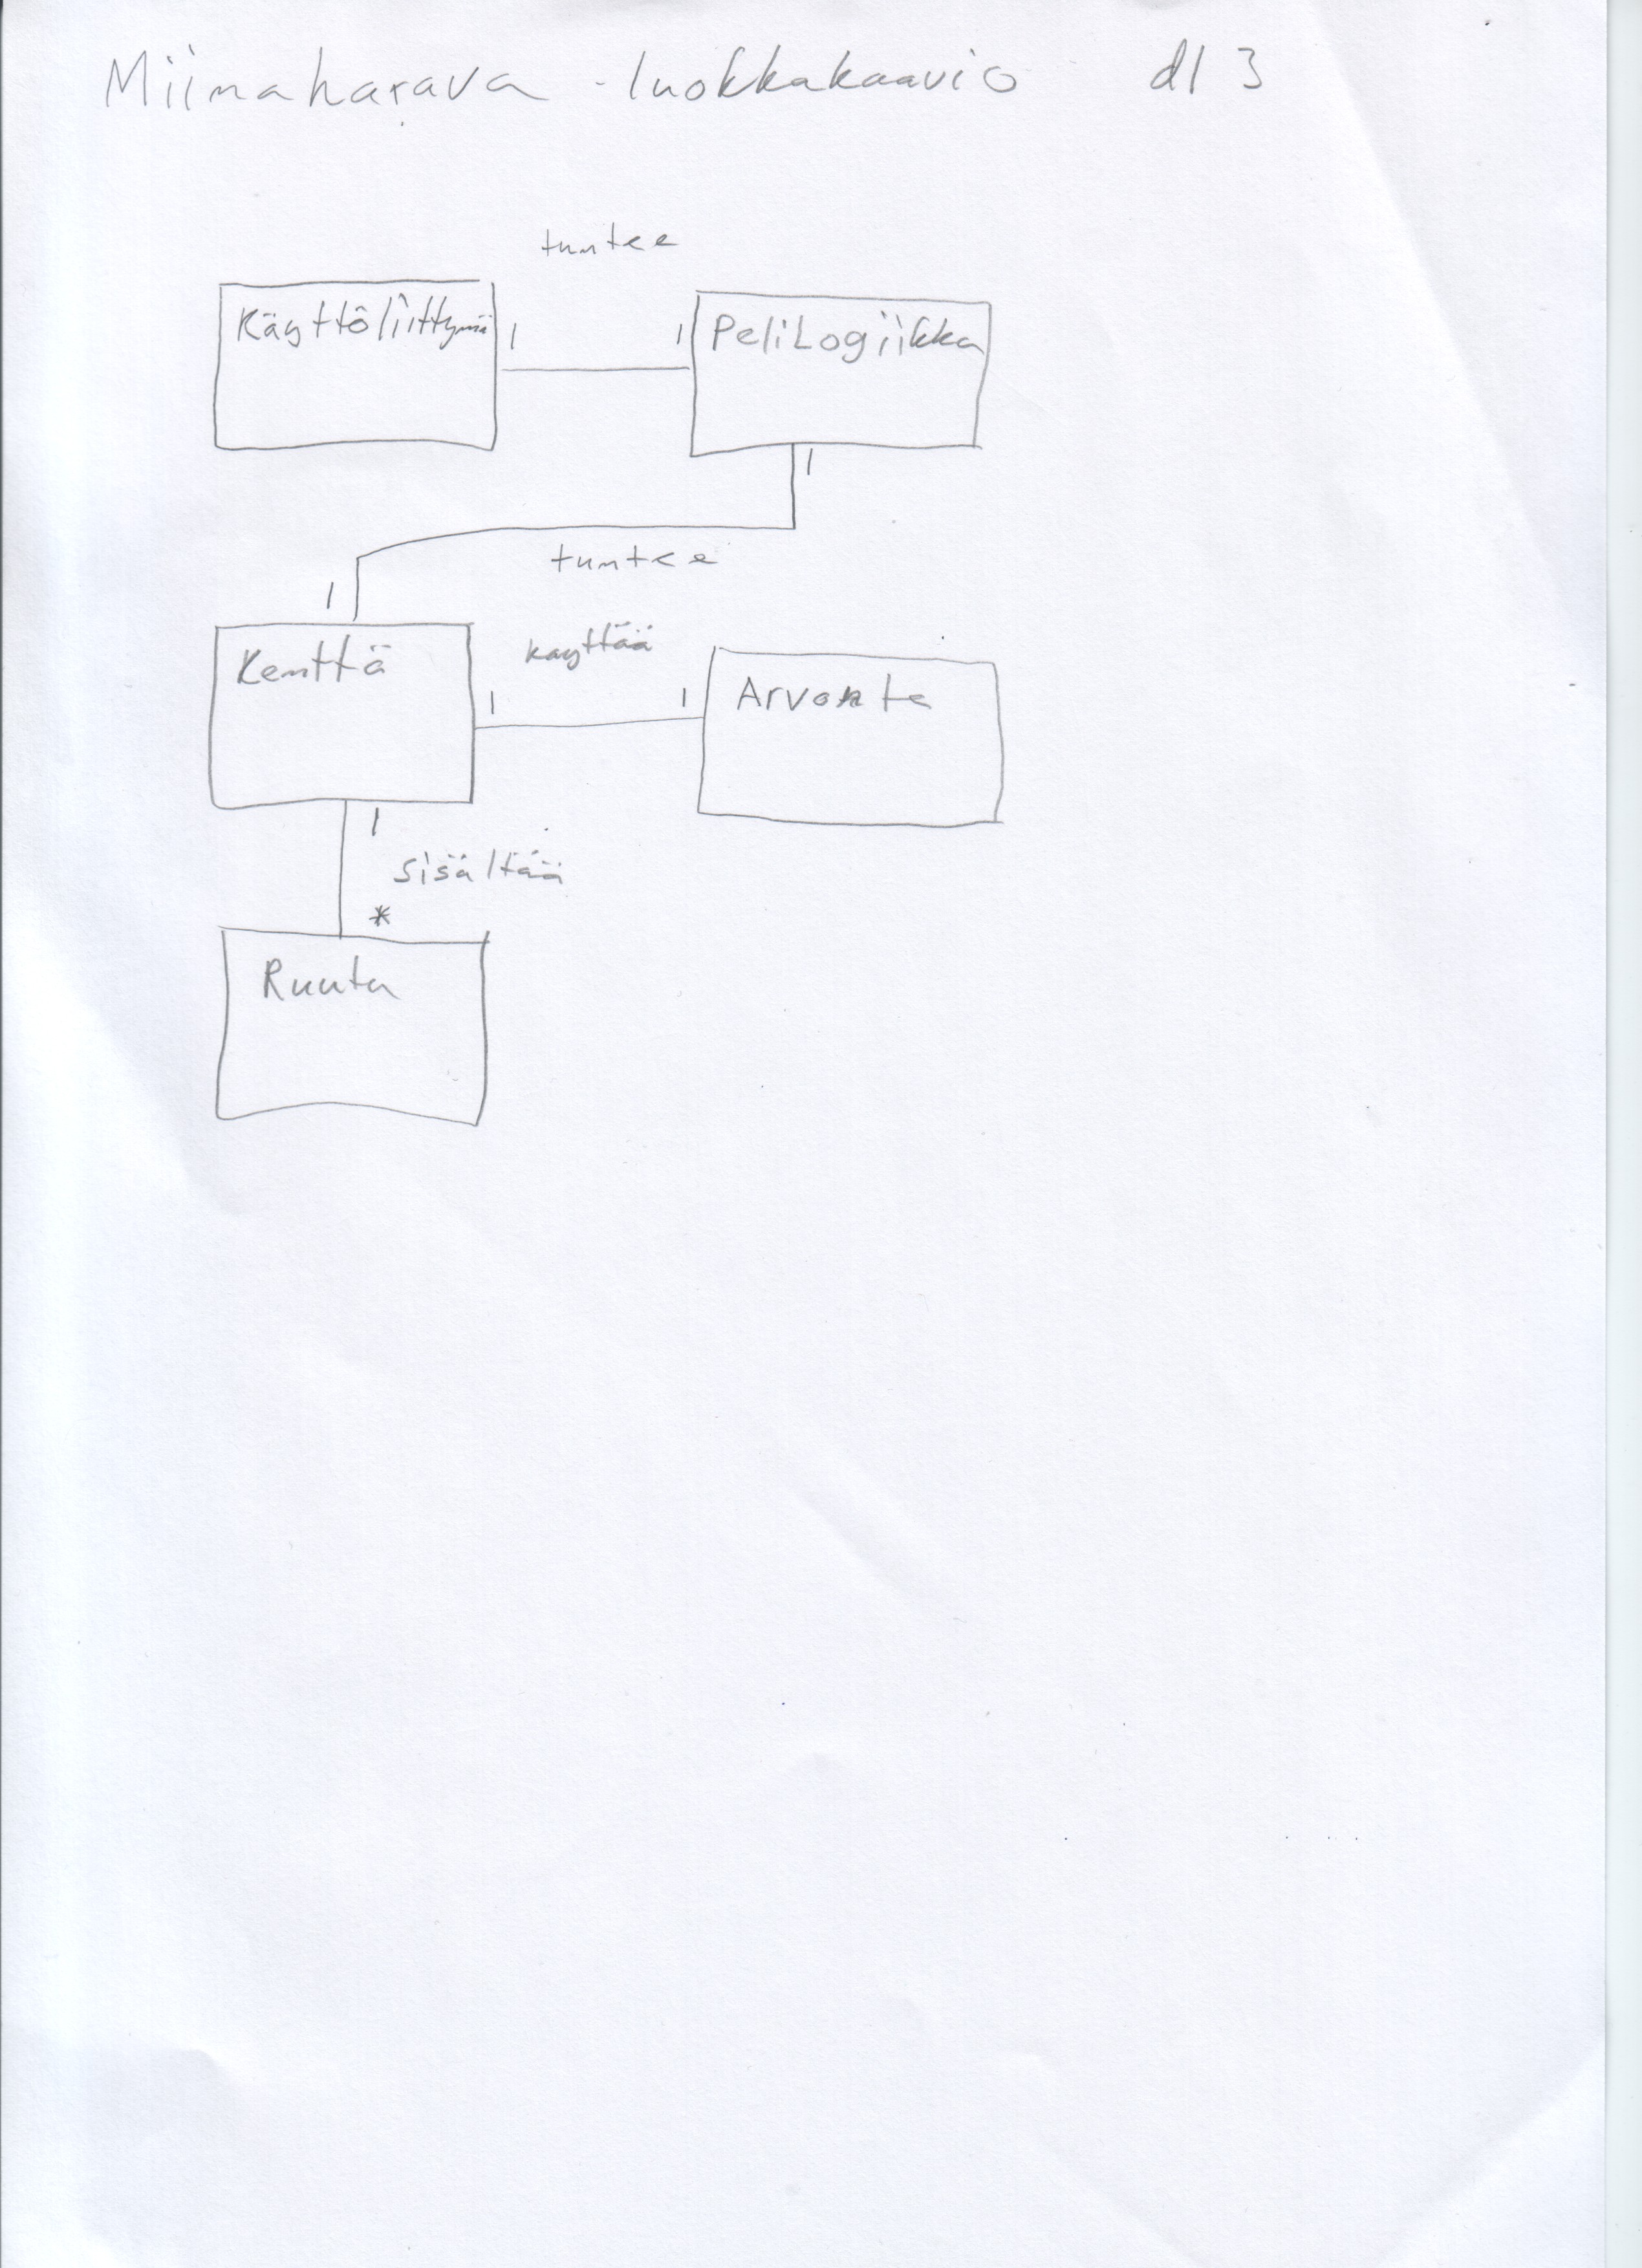 Miinaharava -luokkakaavio dl 3
tuntee
Käyttöliittymä 1 1 PeliLogiikka
1
tuntee
1
Kenttä käyttää
1 1 Arvonta
1
sisältää
*
Ruutu